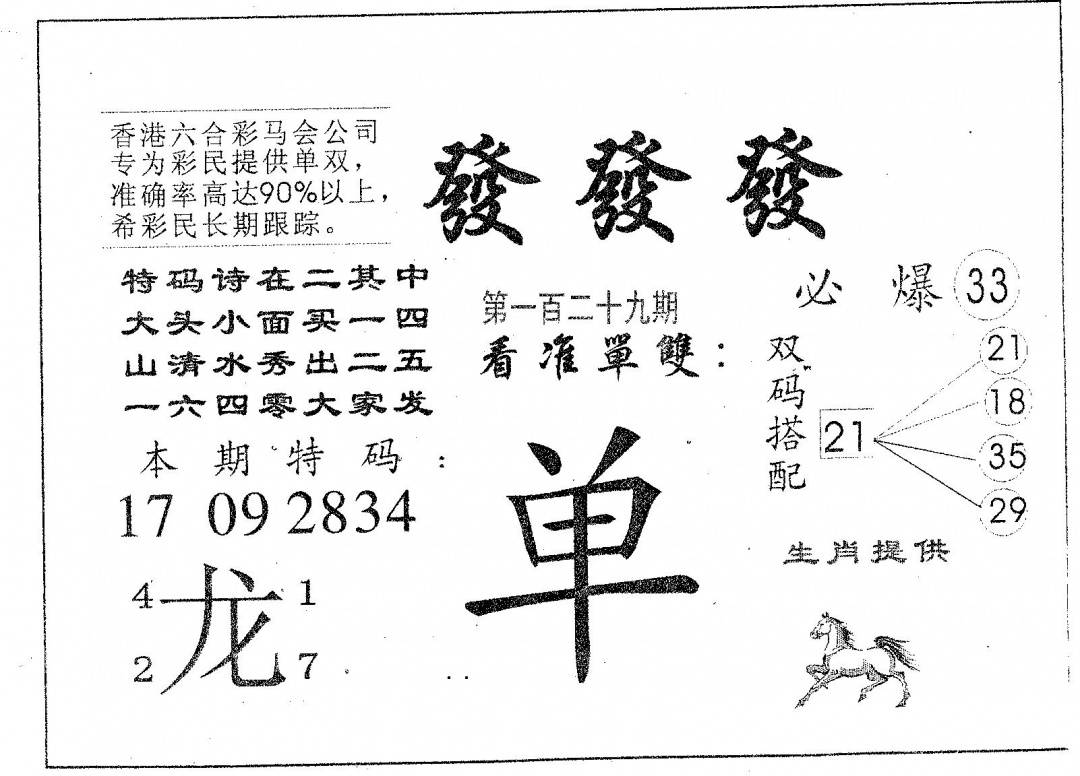 香港六合彩马会公司
专为彩民提供单双，
准确率高达90%以上，
希彩民长期跟踪。
發發發
特码诗在二其中
大头小面买一四
山清水秀出二五
一六四零大家发
第一百二十九期
看准單雙：
必爆 33
双码搭配
21
21
18
35
29
本期特码：
17 09 2834
4 龙 1
2 7
单
生肖提供